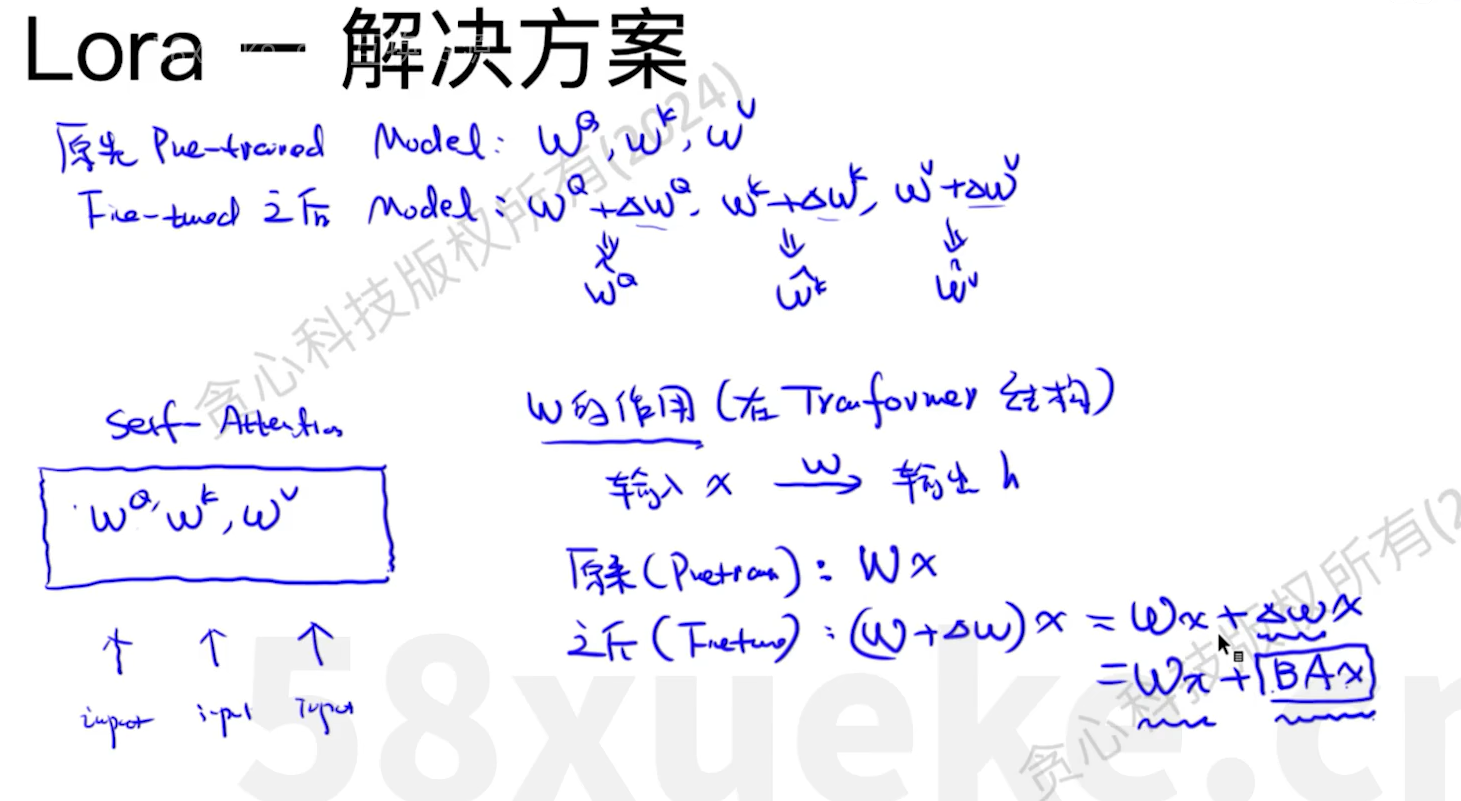 Lora — 解决方案
原先 Pre-trained Model: W^Q, W^K, W^V
Fine-tuned 之后 Model: W^Q+ΔW^Q, W^K+ΔW^K, W^V+ΔW^V
⇓ ⇓ ⇓
Ŵ^Q Ŵ^K Ŵ^V
Self-Attention
W^Q, W^K, W^V
↑ ↑ ↑
input input input
W的作用 (在 Tranformer 结构)
输入 x —W→ 输出 h
原来 (Pretrain): Wx
之后 (Finetune): (W+ΔW)x = Wx+ΔWx
= Wx+BAx
贪心科技版权所有(2024)
贪心科技版权所有(2
58xueke.cn